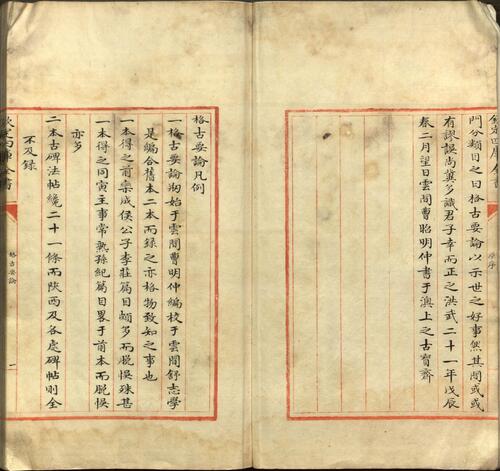 門分類目之曰格古要論以示世之好事然其間或
有謬誤尚冀多識君子幸而正之洪武二十一年戊辰
春二月望日雲間曹昭明仲書于澳上之古寶齋
格古要論凡例
一格古要論始于雲間曹明仲編校于雲間舒志學
是編合舊本二本而錄之亦格物致知之事也
一本得之前欒成侯公子李莊篇目頗多而脫悞殊甚
一本得之同寅主事常熟孫紀篇目畧于前本而脫悞
亦多
二本古碑法帖纔二十一條而陝西及各處碑帖則全
不及録
欽定四庫全書
格古要論
一